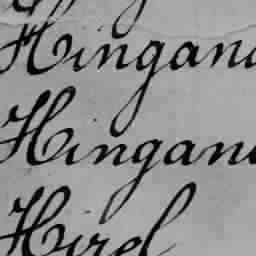 Hingan
Hingan
Hirel